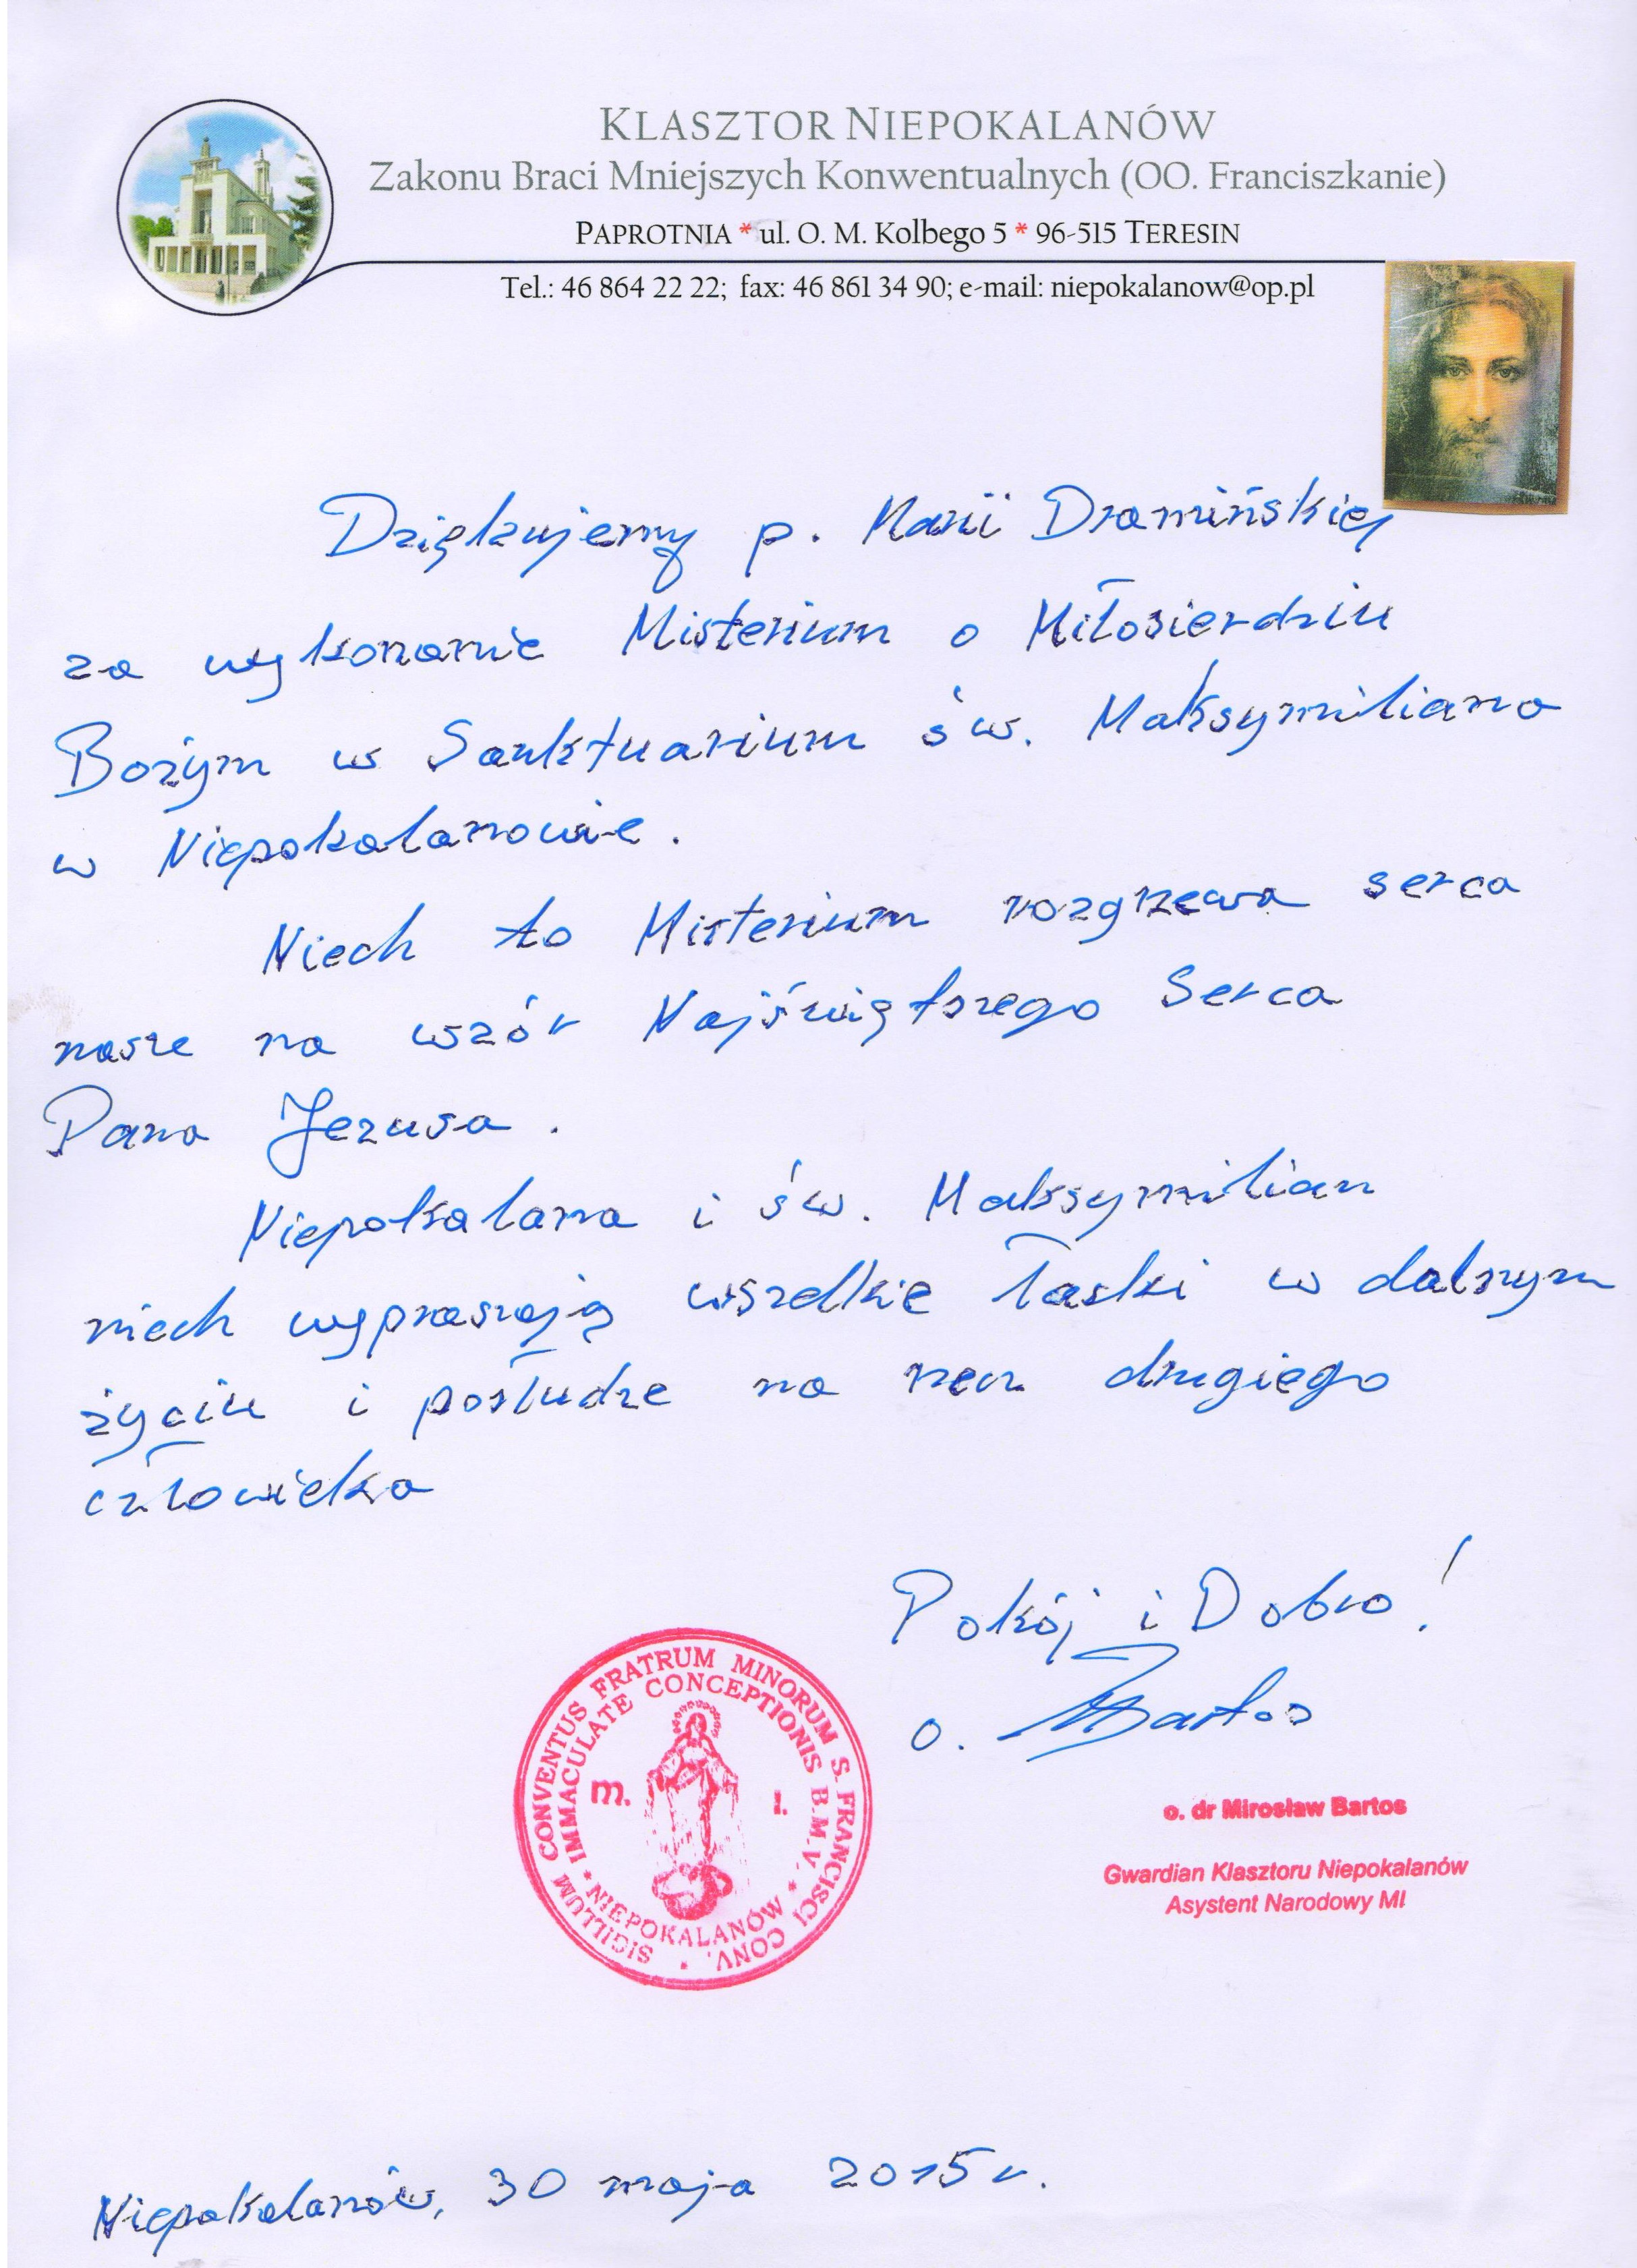 KLASZTOR NIEPOKALANÓW
Zakonu Braci Mniejszych Konwentualnych (OO. Franciszkanie)
PAPROTNIA * ul. O. M. Kolbego 5 * 96-515 TERESIN
Tel.: 46 864 22 22; fax: 46 861 34 90; e-mail: niepokalanow@op.pl
Dziękujemy p. Marii Dramińskiej
za wykonanie Misterium o Miłosierdziu
Bożym w Sanktuarium św. Maksymiliana
w Niepokalanowie.
Niech to Misterium rozgrzewa serca
nasze na wzór Najświętszego Serca
Pana Jezusa.
Niepokalana i św. Maksymilian
niech wypraszają wszelkie łaski w dalszym
życiu i posłudze na rzecz drugiego
człowieka
Pokój i Dobro!
o. Bartos
SIGILLUM CONVENTUS FRATRUM MINORUM S. FRANCISCI CONV.
* IMMACULATE CONCEPTIONIS B.M.V. *
m. I.
NIEPOKALANÓW
o. dr Mirosław Bartos
Gwardian Klasztoru Niepokalanów
Asystent Narodowy MI
Niepokalanów, 30 maja 2015 r.